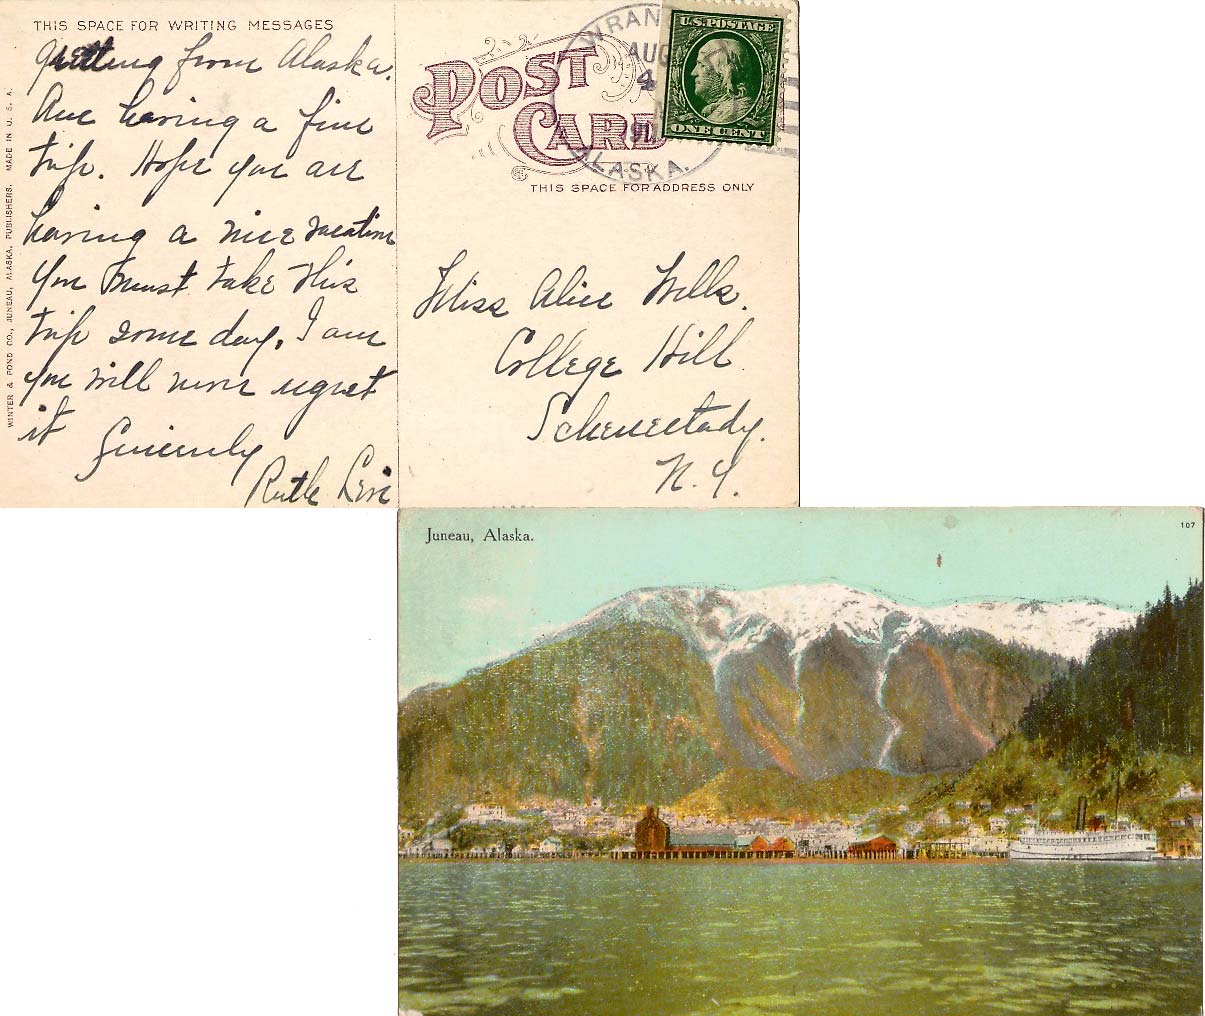 THIS SPACE FOR WRITING MESSAGES
Greeting from Alaska.
Am having a fine
trip. Hope you are
having a nice vacation
You must take this
trip some day, I am
you will never regret
it
Sincerely
Ruth
WINTER & POND CO., JUNEAU, ALASKA, PUBLISHERS. MADE IN U. S. A.
POST
CARD
THIS SPACE FOR ADDRESS ONLY
WRAN
AUG
4
ALASKA.
U.S. POSTAGE
ONE CENT
Miss Alice Wells.
College Hill
Schenectady.
N. Y.
Juneau, Alaska.
107